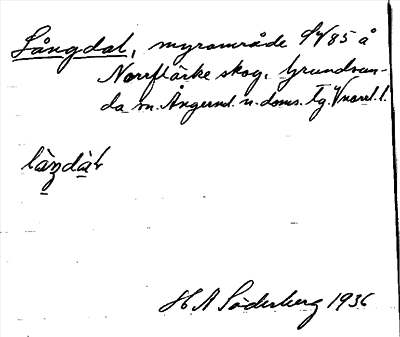 Långdal, myrområde 9/85 å
Norrflärke skog, Grundsun-
da sn. Ångerml. n. doms. tg. V norrl. l.
làŋdàƚ
H A Söderberg 1936